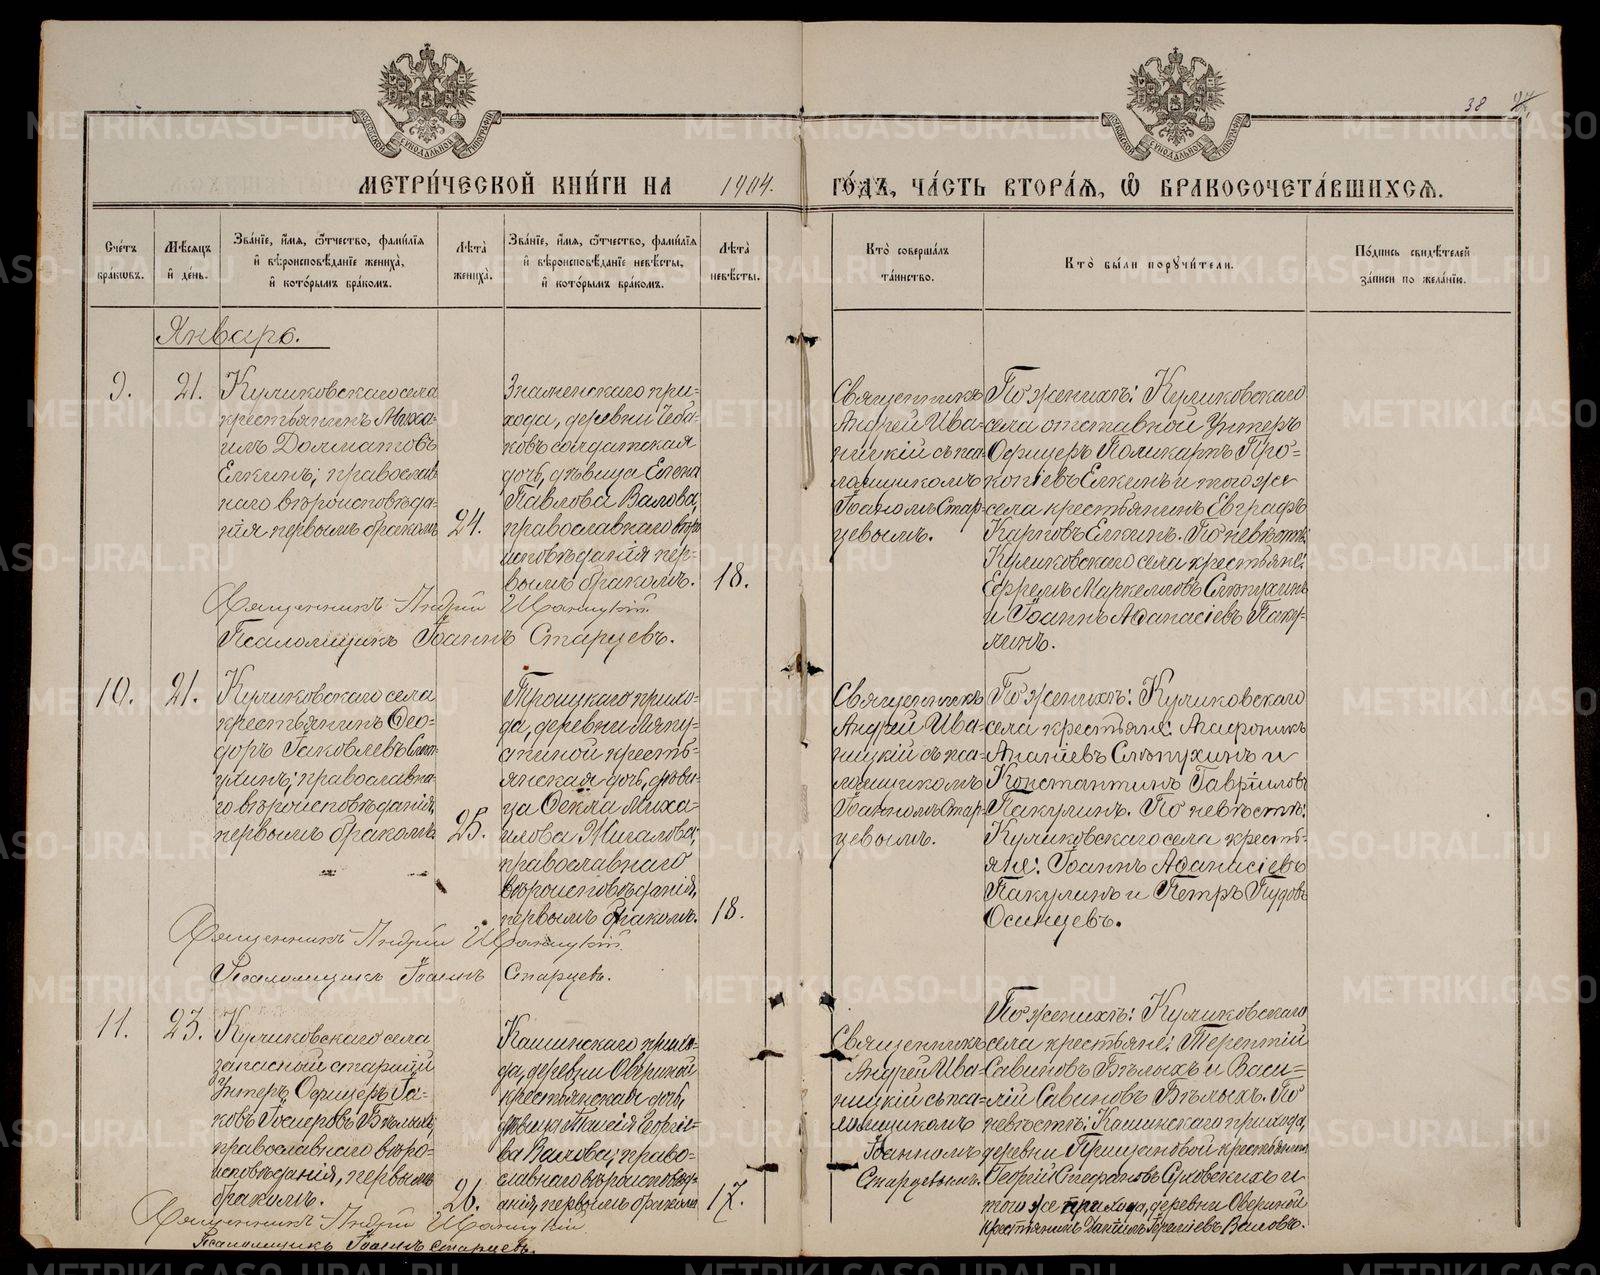 38
МЕТРИ́ЧЕСКОЙ КНИ́ГИ НА 1904. ГО́ДЪ, ЧА́СТЬ ВТОРА́Я, Ѡ БРАКОСОЧЕТА́ВШИХСЯ.
Сче́тъ браковъ.
Мѣ́сяцъ и́ де́нь.
Зва́нїе, и́мя, ѻ́тчество, фами́лїя и́ вѣроисповѣ́данїе жениха̀, и́ кото́рымъ бра́комъ.
Лѣта̀ жениха̀.
Зва́нїе, и́мя, ѻ́тчество, фами́лїя и́ вѣроисповѣ́данїе невѣ́сты, и́ кото́рымъ бра́комъ.
Лѣта̀ невѣ́сты.
Кто̀ соверша́лъ та́инство.
Кто̀ бы́ли порꙋчи́тели.
По́дпись свидѣ́телей за́писи по жела́нїю.
Январь.
9.
21.
Куликовскаго села
крестьянинъ Миха-
илъ Долматовъ
Елкинъ, православ
наго вѣроисповѣда-
нія первымъ бракомъ
24.
Знаменскаго при-
хода, деревни Чеба-
ковъ солдатская
дочь, дѣвица Елена
Павлова Валова,
православнаго вѣро
исповѣданія пер-
вымъ бракомъ.
18.
Священникъ
Андрей Ива-
ницкій съ пса-
ломщикомъ
Іоанномъ Стар-
цевымъ.
По женихѣ: Куликовскаго
села отставной Унтеръ
Офицеръ Поликарпъ Про-
копіевъ Елкинъ и того же
села крестьянинъ Евграфъ
Карповъ Елкинъ. По невѣстѣ:
Куликовскаго села крестьяне:
Ефремъ Маркелловъ Слѣпухинъ
и Іоаннъ Аѳанасіевъ Паку-
линъ.
Священникъ Андрей Иваницкій.
Псаломщикъ Іоаннъ Старцевъ.
10.
21.
Куликовскаго села
крестьянинъ Ѳео-
доръ Іаковлевъ
православна-
го вѣроисповѣданія,
первымъ бракомъ.
25.
Троицкаго прихо-
да, деревни
крестьянская дочь, дѣви-
ца Ѳекла Миха-
илова Жигалова,
православнаго
вѣроисповѣданія,
первымъ бракомъ.
18.
Священникъ
Андрей Ива-
ницкій съ пса-
ломщикомъ
Іоанномъ Стар-
цевымъ.
По женихѣ: Куликовскаго
села крестьяне:
Ананіевъ Слѣпухинъ и
Константинъ Гавріиловъ
Пакулинъ. По невѣстѣ:
Куликовскаго села кресть-
яне: Іоаннъ Аѳанасіевъ
Пакулинъ и Петръ Пудовъ
Осинцевъ.
Священникъ Андрей Иваницкій.
Псаломщикъ Іоаннъ Старцевъ.
11.
23.
Куликовскаго села
запасной старшій
Унтеръ Офицеръ Іа-
ковъ Бѣлыхъ,
православнаго вѣро-
исповѣданія, первымъ
бракомъ.
26.
Кашинскаго прихо-
да, деревни Овериной
крестьянская дочь,
дѣвица Таисія Георгіе-
ва Валова, право-
славнаго вѣроисповѣд-
анія, первымъ бракомъ
17.
Священникъ
Андрей Ива-
ницкій съ пса-
ломщикомъ
Іоанномъ
Старцевымъ.
По женихѣ: Куликовскаго
села крестьяне: Терентій
Савиновъ Бѣлыхъ и Васи-
лій Савиновъ Бѣлыхъ. По
невѣстѣ: Кашинскаго прихода,
деревни крестьянинъ
Георгій Стефановъ и
того же прихода, деревни Овериной
крестьянинъ Валовъ.
Священникъ Андрей Иваницкій
Псаломщикъ Іоаннъ Старцевъ.
METRIKI.GASO-URAL.RU